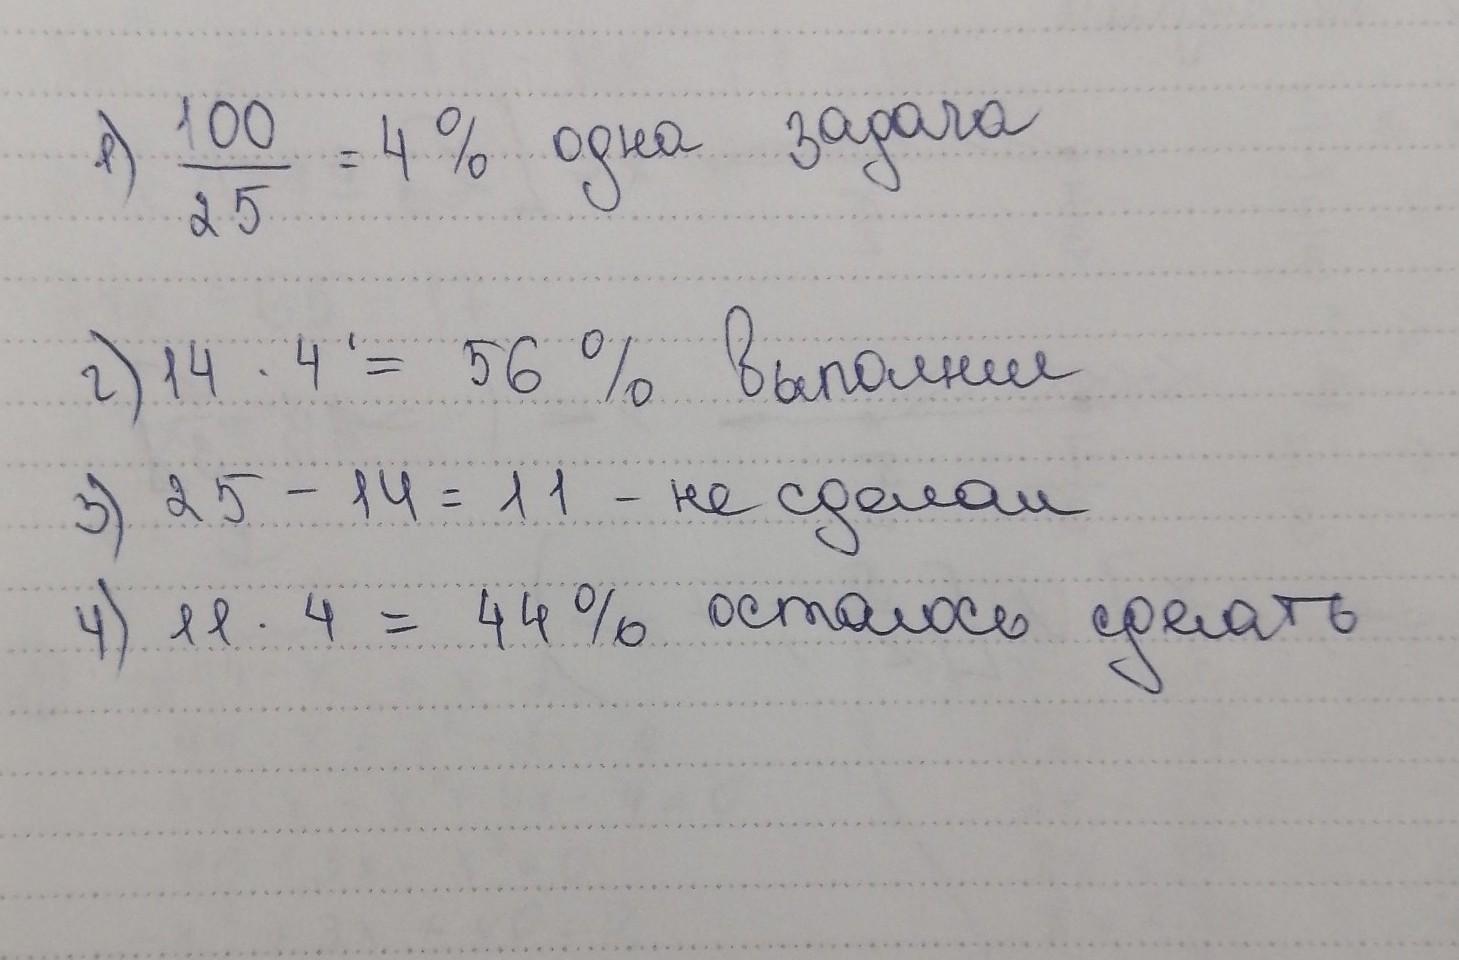 1) 100/25 = 4% одна задача
2) 14 · 4 = 56% выполнил
3) 25 - 14 = 11 - не сделал
4) 11 · 4 = 44% осталось сделать